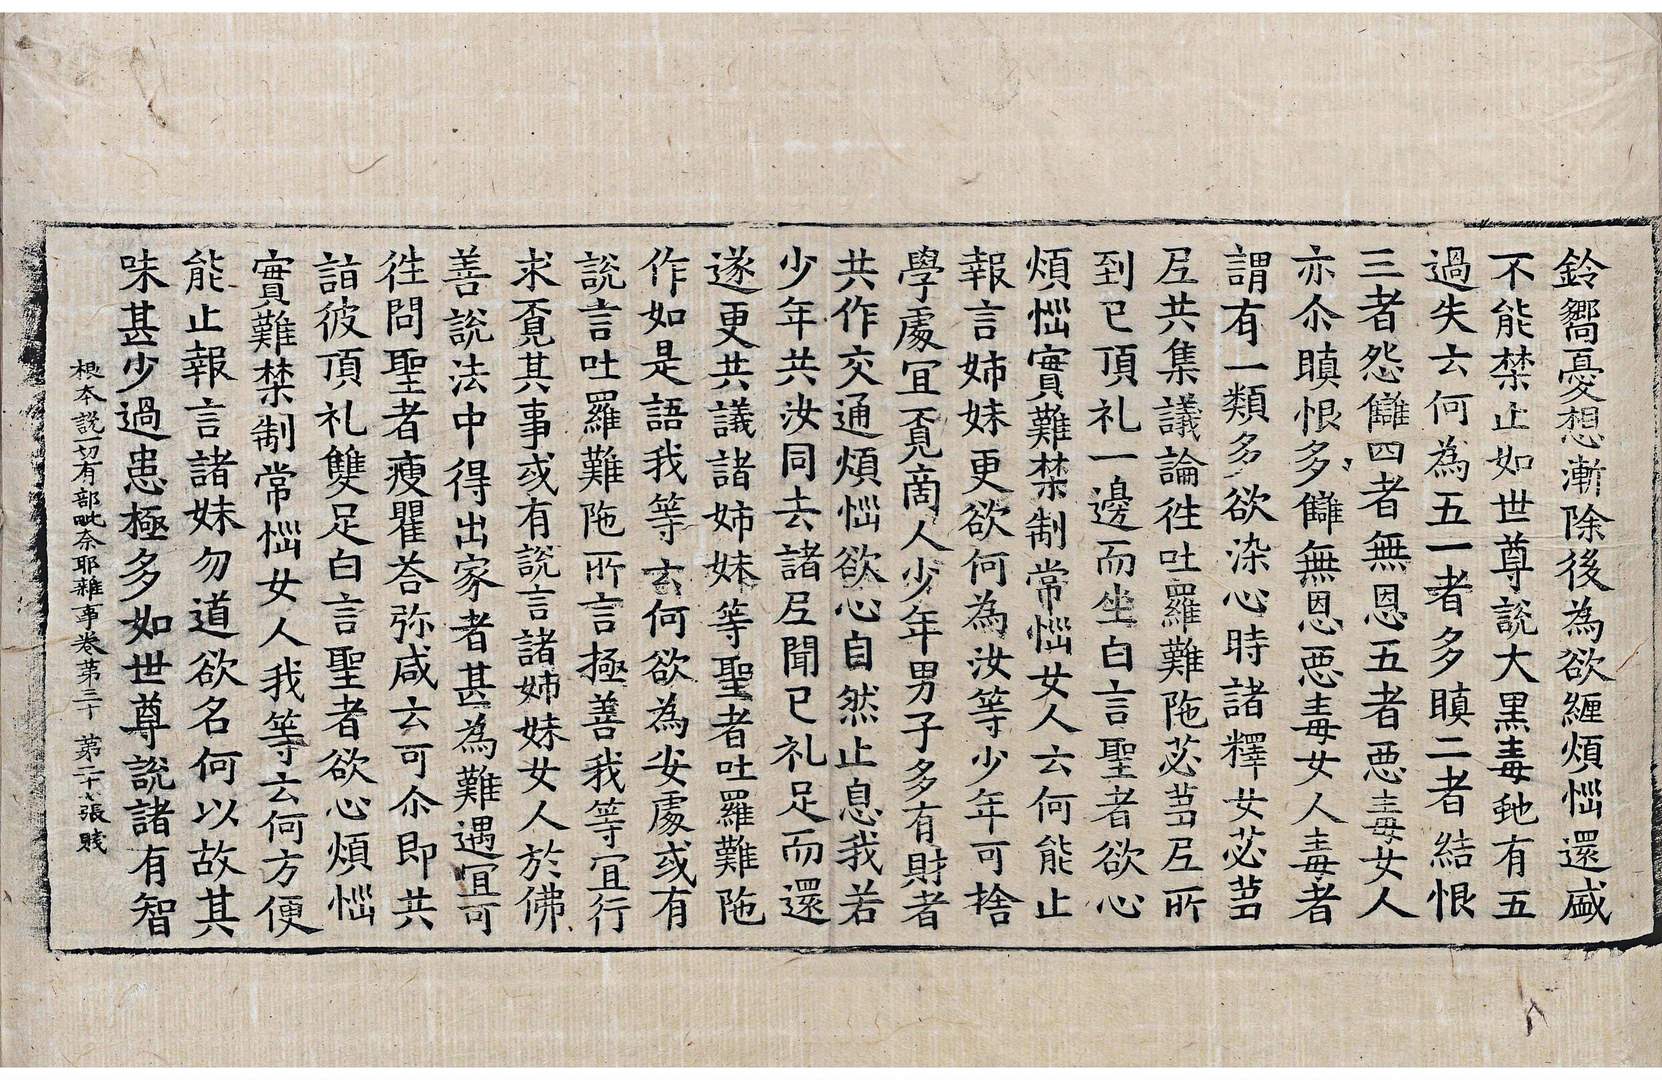 鈴嚮憂想漸除後為欲纏煩惱還盛
不能禁止如世尊說大黑毒虵有五
過失云何為五一者多瞋二者結恨
三者怨讎四者無恩五者惡毒女人
亦尒瞋恨多讎無恩惡毒女人毒者
謂有一類多欲染心時諸釋女苾芻
尼共集議論徃吐羅難陁苾芻尼所
到已頂礼一邊而坐白言聖者欲心
煩惱實難禁制常惱女人云何能止
報言姉妹更欲何為汝等少年可捨
學處宜覓商人少年男子多有財者
共作交通煩惱欲心自然止息我若
少年共汝同去諸尼聞已礼足而還
遂更共議諸姉妹等聖者吐羅難陁
作如是語我等云何欲為安處或有
說言吐羅難陁所言極善我等宜行
求覓其事或有說言諸姉妹女人於佛
善說法中得出家者甚為難遇宜可
徃問聖者瘦瞿荅弥咸云可尒即共
詣彼頂礼雙足白言聖者欲心煩惱
實難禁制常惱女人我等云何方便
能止報言諸妹勿道欲名何以故其
味甚少過患極多如世尊說諸有智
根本說一切有部毗奈耶雜事卷第三十 第二十張 賤